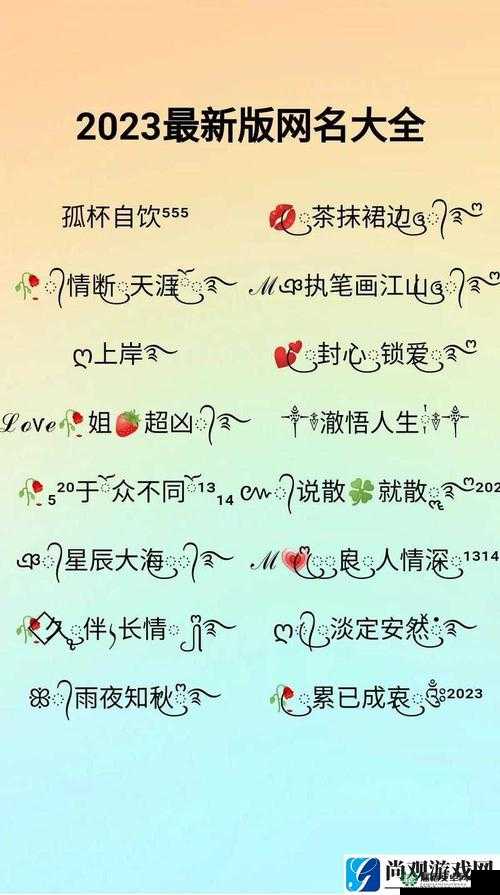 2023最新版网名大全
孤杯自饮⁵⁵⁵ 💋茶抹裙边
🥀情断天涯 ℳ执笔画江山
ღ上岸 💕封心锁爱
ℒℴνℯ🥀姐🍓超凶 澈悟人生
🥀₅²⁰于众不同¹³₁₄ 说散🍀就散²⁰²
星辰大海 ℳ💗良人情深¹³¹⁴
🥀久伴长情 ღ淡定安然
ꕥ雨夜知秋 🥀累已成哀ॐ²⁰²³
尚观游戏网